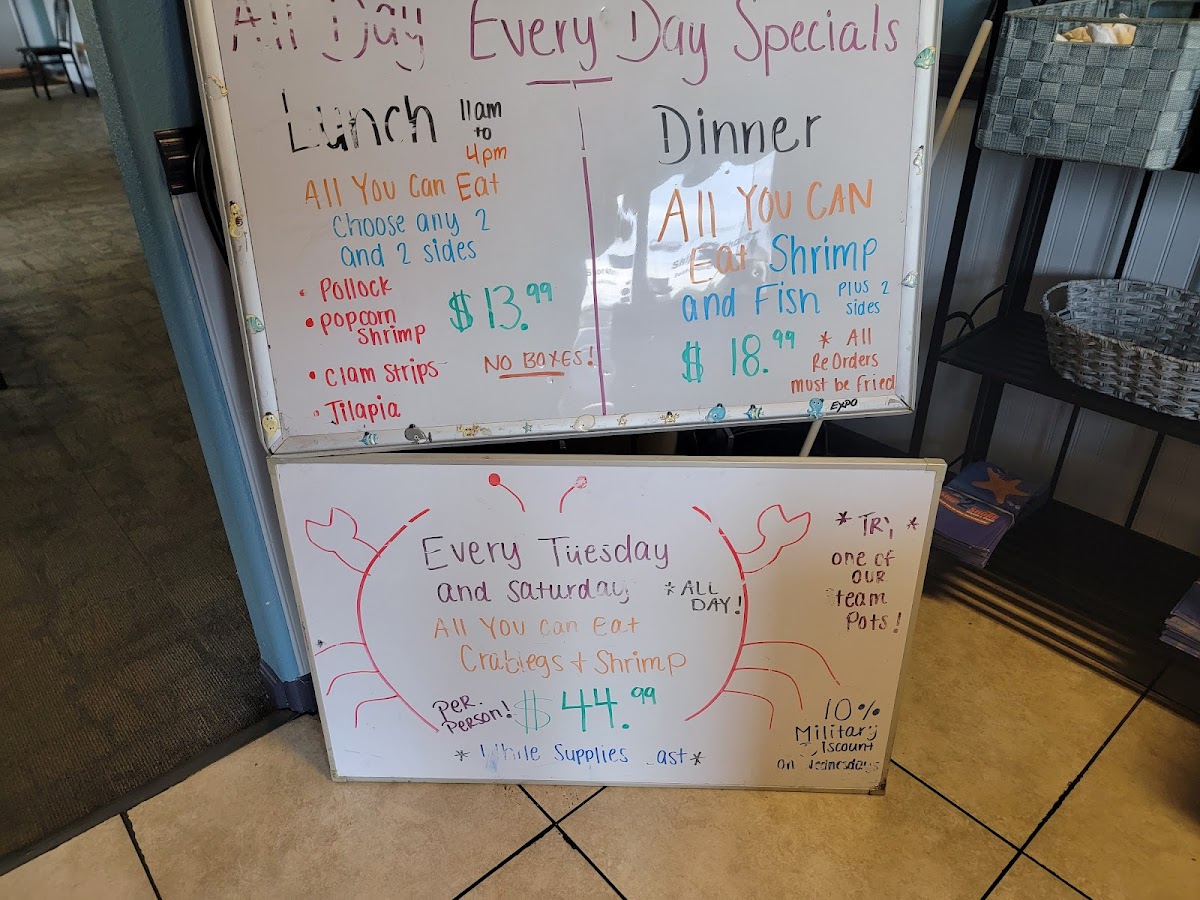 All Day Every Day Specials
Lunch 11am
to
4pm
All You Can Eat
Choose any 2
and 2 sides
• Pollock
• Popcorn
Shrimp
• Clam Strips
• Tilapia
$13.99
NO BOXES!
Dinner
All YOU CAN
Eat Shrimp
and Fish Plus 2
sides
$18.99
* All
ReOrders
must be fried
EXPO
Every Tuesday
and Saturday
* ALL
DAY!
All You Can Eat
Crablegs + Shrimp
Per
Person!
$44.99
* While Supplies ast *
* TRy *
one of
our
team
Pots!
10%
Military
iscount
on Wednesdays